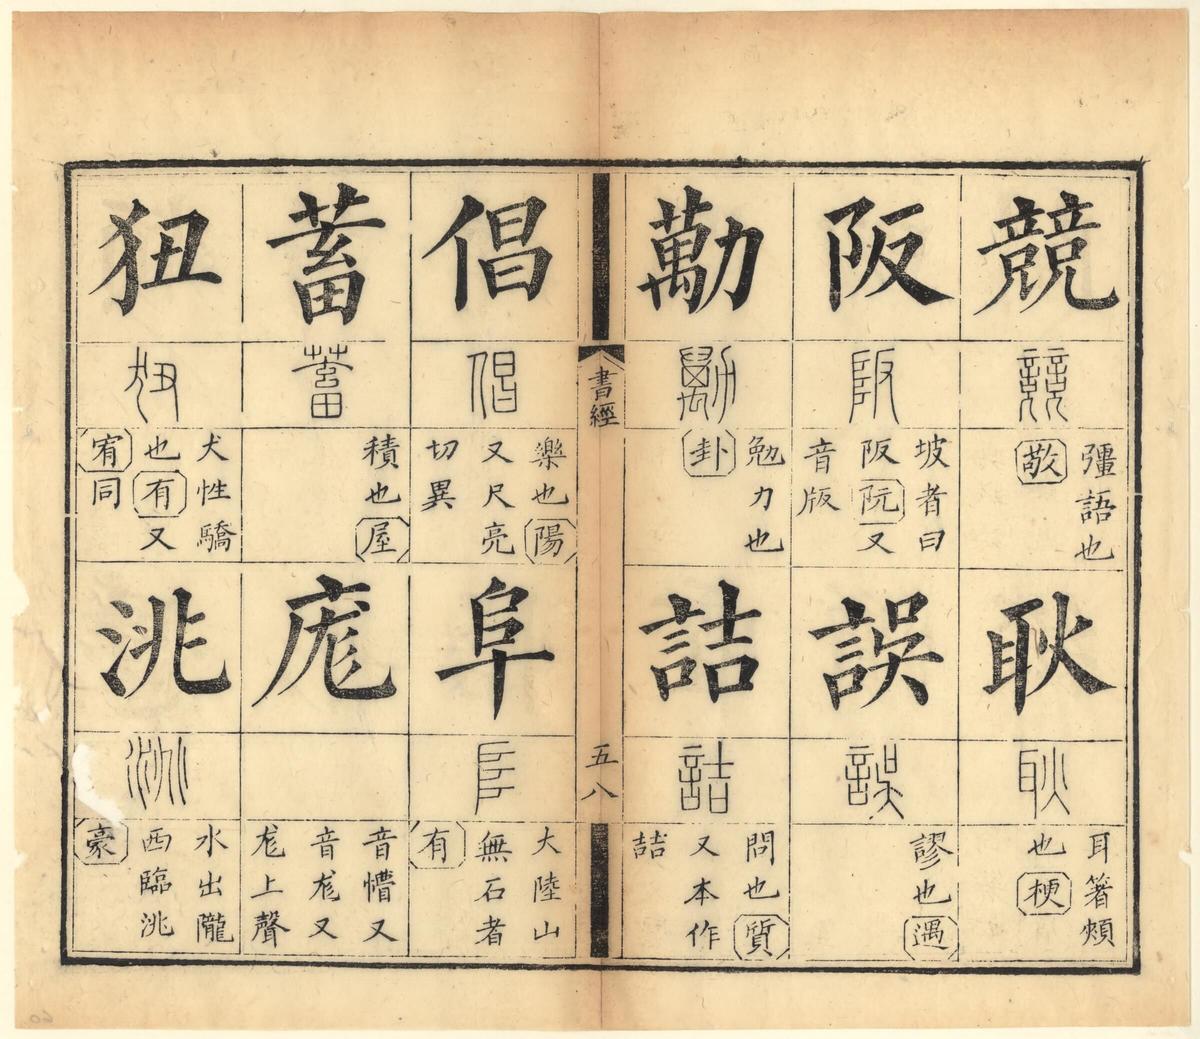 競
彊語也
敬
耿
耳箸頰
也梗
阪
坡者曰
阪阮又
音版
誤
謬也遇
勱
勉力也
卦
詰
問也質
又本作
喆
書經
五八
倡
樂也陽
又尺亮
切異
阜
大陸山
無石者
有
蓄
積也屋
厖
音懵又
音尨又
尨上聲
狃
犬性驕
也有又
宥同
洮
水出隴
西臨洮
豪